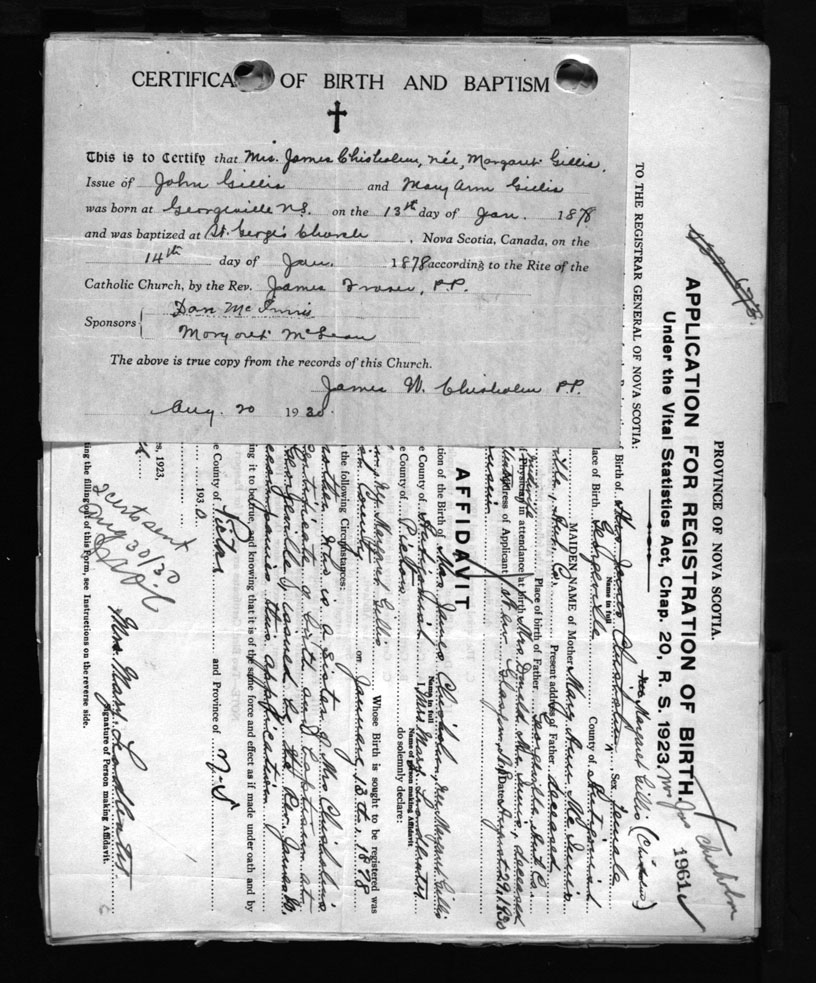 CERTIFICA OF BIRTH AND BAPTISM
This is to Certify that Mrs. James Chisholm, née, Margaret Gillis.
Issue of John Gillis and Mary Ann Gillis
was born at Georgeville N.S. on the 13th day of Jan. 1878
and was baptized at St. George's Church, Nova Scotia, Canada, on the
14th day of Jan. 1878 according to the Rite of the
Catholic Church, by the Rev. James Fraser, P.P.
Sponsors Dan McInnis
Margaret McLean
The above is true copy from the records of this Church.
James W. Chisholm P.P.
Aug. 20 1930.
PROVINCE OF NOVA SCOTIA.
APPLICATION FOR REGISTRATION OF BIRTH.
Under the Vital Statistics Act, Chap. 20, R. S. 1923,
Mrs Jas Chisholm
1961
TO THE REGISTRAR GENERAL OF NOVA SCOTIA:
nee Margaret Gillis
Birth of Mrs James Chisholm Sex female
Name in full
lace of Birth Georgeville County of Antigonish
MAIDEN NAME of Mother Mary Ann McInnis
ville, Ant. Co. Present address of Father deceased
Place of birth of Father Georgeville Ant Co.
Physician in attendance at birth Mrs Donald McInnis, deceased
Address of Applicant New Glasgow, N.S. Date August 29, 1930
AFFIDAVIT
tion of the Birth of Mrs James Chisholm, nee Margaret Gillis
Name in full
e County of Antigonish I, Mrs. Mary
Name of person making Affidavit
e County of Pictou do solemnly declare:
Margaret Gillis Whose Birth is sought to be registered was
County on January 13th, 1878
the following Circumstances:
who is a sister of Mrs Chisholm's
Certificate of birth and baptism at
Georgeville, issued by the Rev. James W.
accompanies this application.
ing it to be true, and knowing that it is of the same force and effect as if made under oath and by
e County of Pictou and Province of N-S
193 0
es, 1923,
Mrs. Mary
Signature of Person making Affidavit.
ting the filling out of this Form, see Instructions on the reverse side.
2 certs sent
Aug 30/30